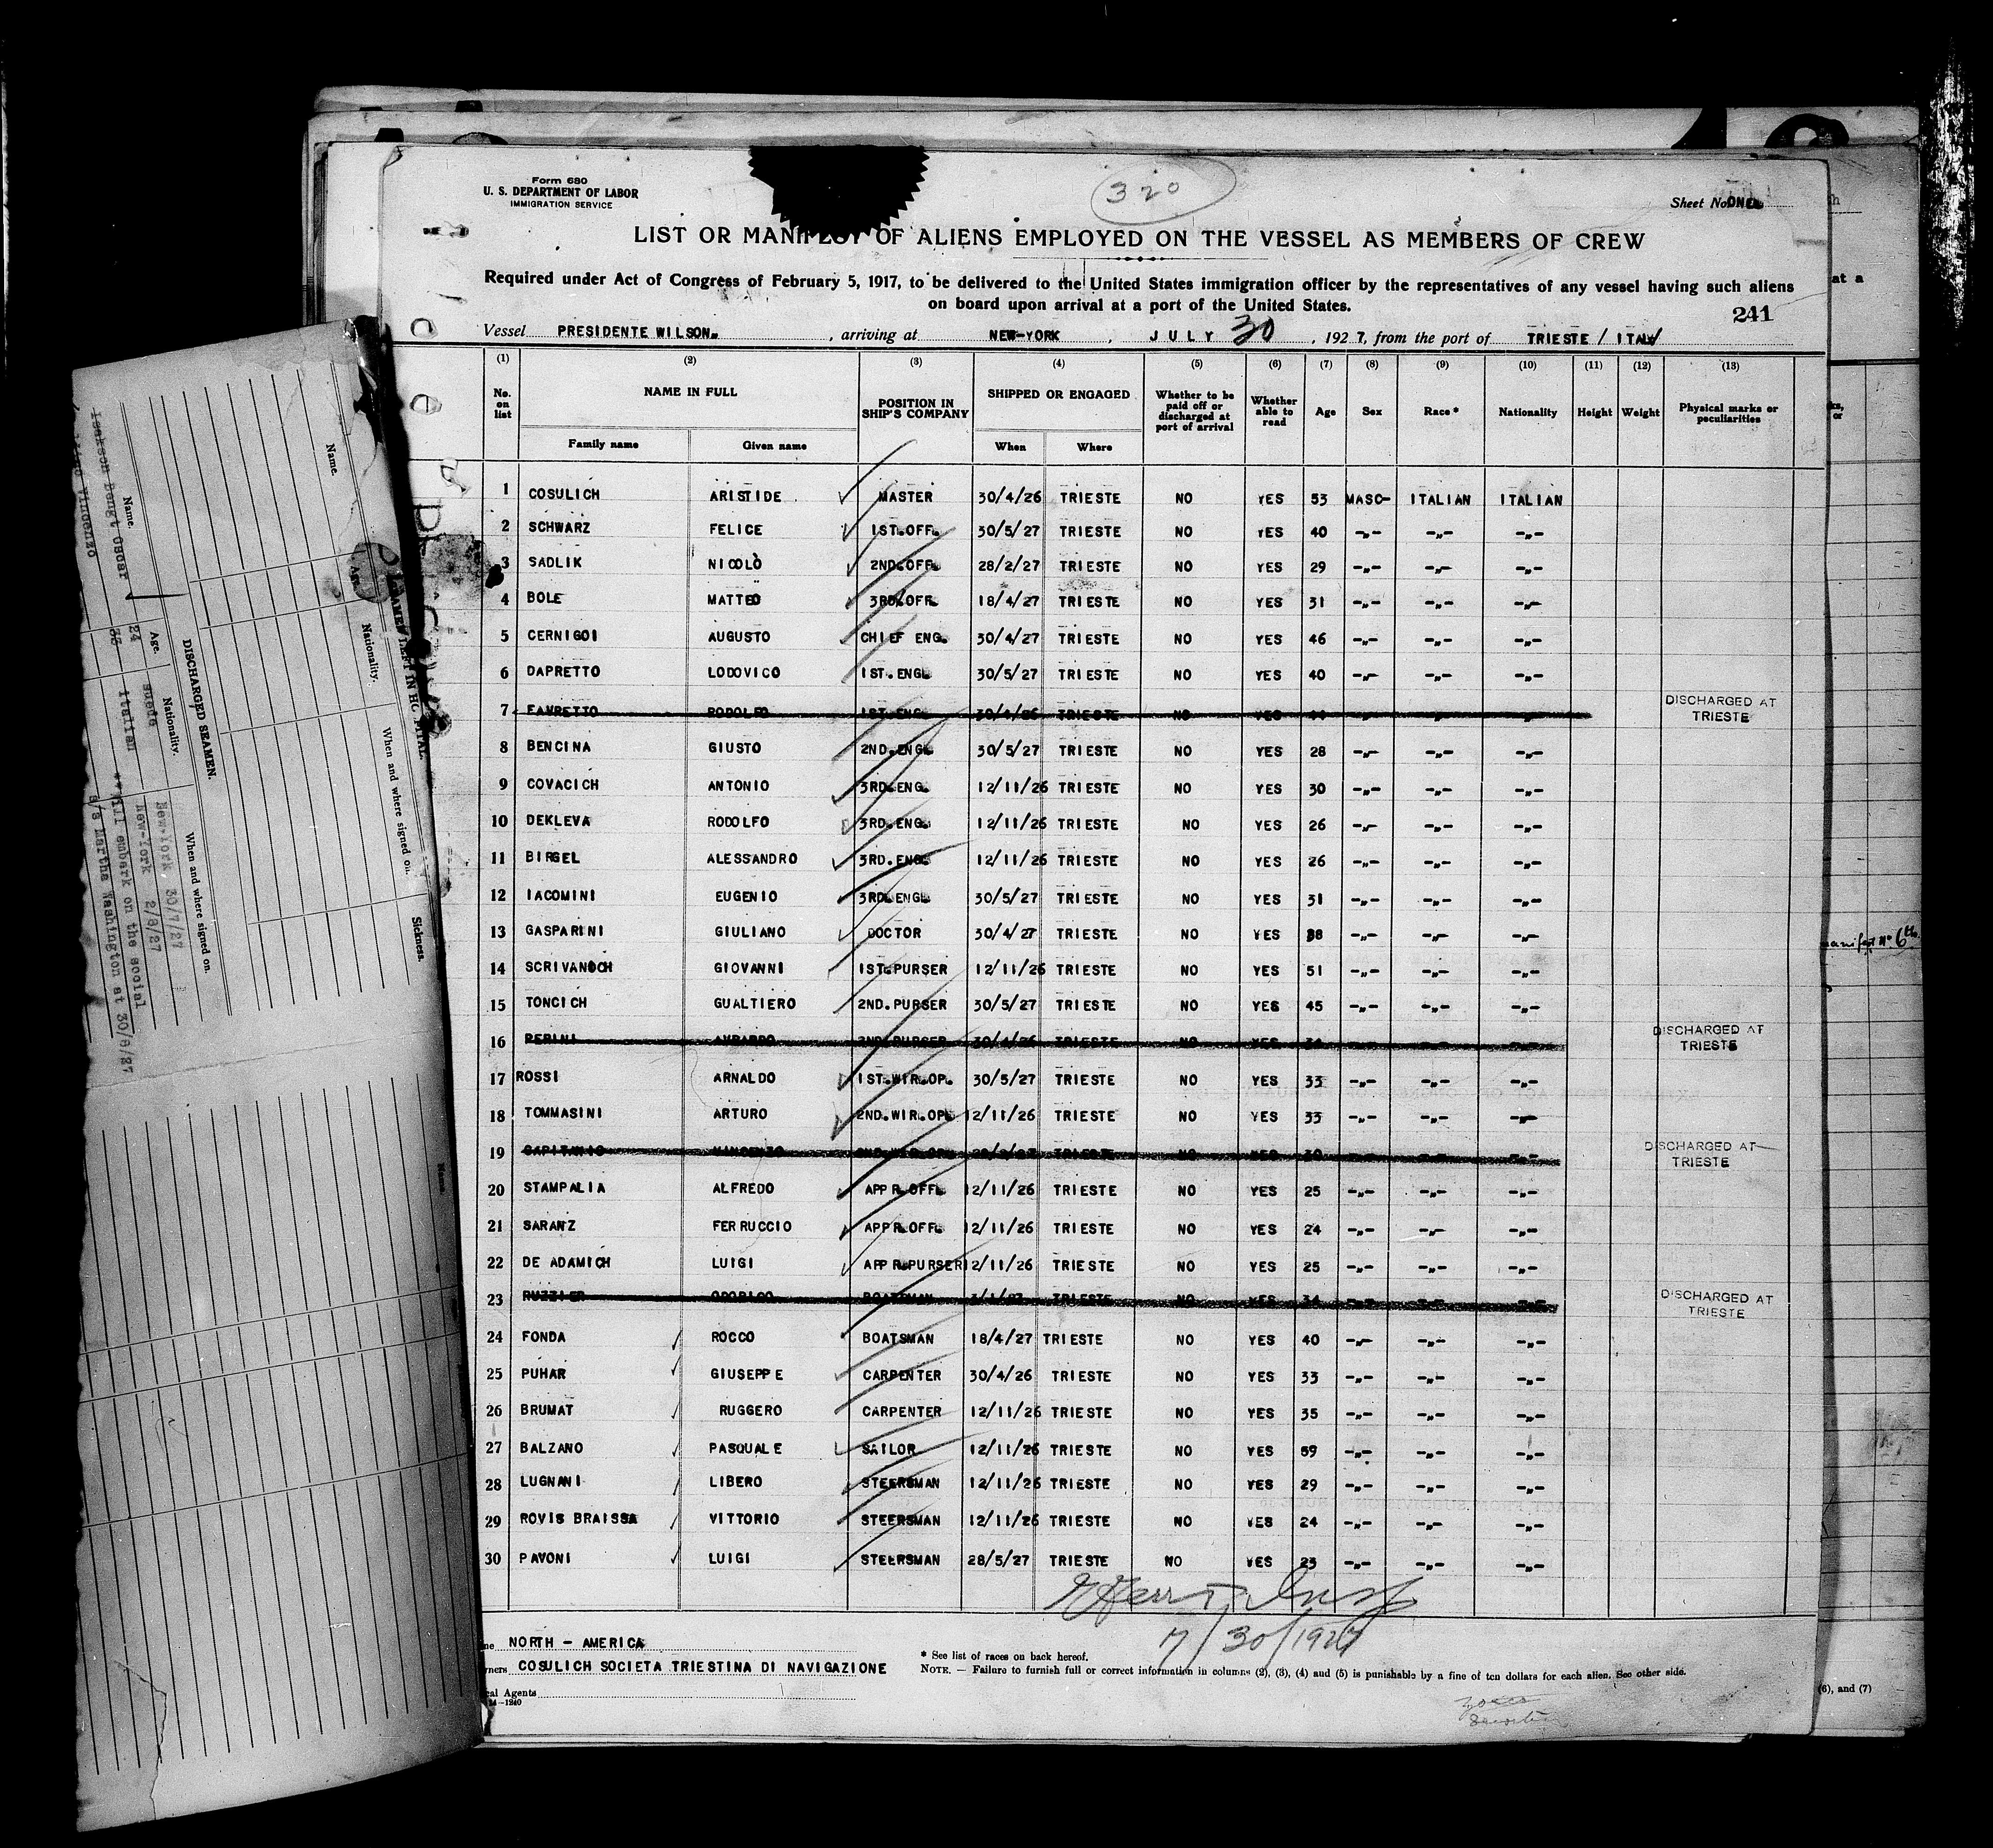 Form 680
U. S. DEPARTMENT OF LABOR
IMMIGRATION SERVICE
320
Sheet No. ONE
LIST OR MANIFEST OF ALIENS EMPLOYED ON THE VESSEL AS MEMBERS OF CREW
Required under Act of Congress of February 5, 1917, to be delivered to the United States immigration officer by the representatives of any vessel having such aliens
on board upon arrival at a port of the United States.
241
Vessel PRESIDENTE WILSON. , arriving at NEW-YORK , JULY 30 , 1927, from the port of TRIESTE / ITALY
(1) (2) (3) (4) (5) (6) (7) (8) (9) (10) (11) (12) (13)
No. on list NAME IN FULL Family name Given name POSITION IN SHIP'S COMPANY SHIPPED OR ENGAGED When Where Whether to be paid off or discharged at port of arrival Whether able to read Age Sex Race* Nationality Height Weight Physical marks or peculiarities
1 COSULICH ARISTIDE MASTER 30/4/26 TRIESTE NO YES 53 MASC- ITALIAN ITALIAN
2 SCHWARZ FELICE 1ST.OFF. 30/5/27 TRIESTE NO YES 40 -„- -„- -„-
3 SADLIK NICOLÒ 2ND.OFF. 28/2/27 TRIESTE NO YES 29 -„- -„- -„-
4 BOLE MATTEO 3RD.OFF. 18/4/27 TRIESTE NO YES 31 -„- -„- -„-
5 CERNIGOI AUGUSTO CHIEF ENG. 30/4/27 TRIESTE NO YES 46 -„- -„- -„-
6 DAPRETTO LODOVICO 1ST.ENG. 30/5/27 TRIESTE NO YES 40 -„- -„- -„-
7 FAVRETTO RODOLFO 1ST.ENG. 30/4/26 TRIESTE NO YES DISCHARGED AT TRIESTE
8 BENCINA GIUSTO 2ND.ENG. 30/5/27 TRIESTE NO YES 28 -„- -„- -„-
9 COVACICH ANTONIO 3RD.ENG. 12/11/26 TRIESTE NO YES 30 -„- -„- -„-
10 DEKLEVA RODOLFO 3RD.ENG. 12/11/26 TRIESTE NO YES 26 -„- -„- -„-
11 BIRGEL ALESSANDRO 3RD.ENG. 12/11/26 TRIESTE NO YES 26 -„- -„- -„-
12 IACOMINI EUGENIO 3RD.ENG. 30/5/27 TRIESTE NO YES 31 -„- -„- -„-
13 GASPARINI GIULIANO DOCTOR 30/4/27 TRIESTE NO YES 38 -„- -„- -„-
14 SCRIVANICH GIOVANNI 1ST.PURSER 12/11/26 TRIESTE NO YES 51 -„- -„- -„-
15 TONCICH GUALTIERO 2ND.PURSER 30/5/27 TRIESTE NO YES 45 -„- -„- -„-
16 PERINI 2ND.PURSER 30/4/26 TRIESTE NO YES -„- -„- -„- DISCHARGED AT TRIESTE
17 ROSSI ARNALDO 1ST.WIR.OP. 30/5/27 TRIESTE NO YES 33 -„- -„- -„-
18 TOMMASINI ARTURO 2ND.WIR.OP. 12/11/26 TRIESTE NO YES 33 -„- -„- -„-
19 CAPITANIO VINCENZO 2ND.WIR.OP. TRIESTE NO YES 30 -„- -„- -„- DISCHARGED AT TRIESTE
20 STAMPALIA ALFREDO APPR.OFF. 12/11/26 TRIESTE NO YES 25 -„- -„- -„-
21 SARANZ FERRUCCIO APPR.OFF. 12/11/26 TRIESTE NO YES 24 -„- -„- -„-
22 DE ADAMICH LUIGI APPR.PURSER 12/11/26 TRIESTE NO YES 25 -„- -„- -„-
23 RUZZIER ODORICO BOATSMAN TRIESTE NO YES 34 -„- -„- -„- DISCHARGED AT TRIESTE
24 FONDA ROCCO BOATSMAN 18/4/27 TRIESTE NO YES 40 -„- -„- -„-
25 PUHAR GIUSEPPE CARPENTER 30/4/26 TRIESTE NO YES 33 -„- -„- -„-
26 BRUMAT RUGGERO CARPENTER 12/11/26 TRIESTE NO YES 35 -„- -„- -„-
27 BALZANO PASQUALE SAILOR 12/11/26 TRIESTE NO YES 59 -„- -„- -„-
28 LUGNANI LIBERO STEERSMAN 12/11/26 TRIESTE NO YES 29 -„- -„- -„-
29 ROVIS BRAISSA VITTORIO STEERSMAN 12/11/26 TRIESTE NO YES 24 -„- -„- -„-
30 PAVONI LUIGI STEERSMAN 28/5/27 TRIESTE NO YES 23 -„- -„- -„-
7/30/1927
NORTH - AMERICA
COSULICH SOCIETA TRIESTINA DI NAVIGAZIONE
Agents
* See list of races on back hereof.
NOTE. — Failure to furnish full or correct information in columns (2), (3), (4) and (5) is punishable by a fine of ten dollars for each alien. See other side.
(6), and (7)
at a
manifest n° 6th
Name. Age. Nationality. When and where signed on. Sickness.
DISCHARGED SEAMEN.
Name. Age. Nationality. When and where signed on.
Isakson Bengt Oscar 24 suede New-York 30/7/27
Vincenzo 33 italian New-York 2/8/27
**ill embark on the social
s/s Martha Washington at 30/8/27
Name